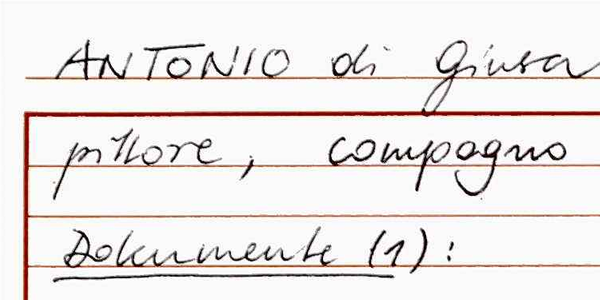 ANTONIO di Giusa
pittore, compagno
Dokumente (1):